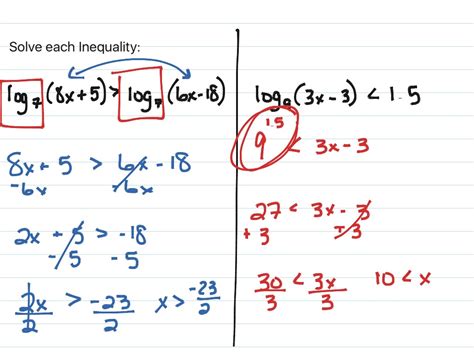 Solve each Inequality:
log₇(8x+5) > log₇(6x-18)
8x + 5 > 6x - 18
-6x -6x
2x + 5 > -18
-5 -5
2x/2 > -23/2 x > -23/2
log₉(3x-3) < 1.5
9^1.5 < 3x - 3
27 < 3x - 3
+3 +3
30/3 < 3x/3 10 < x